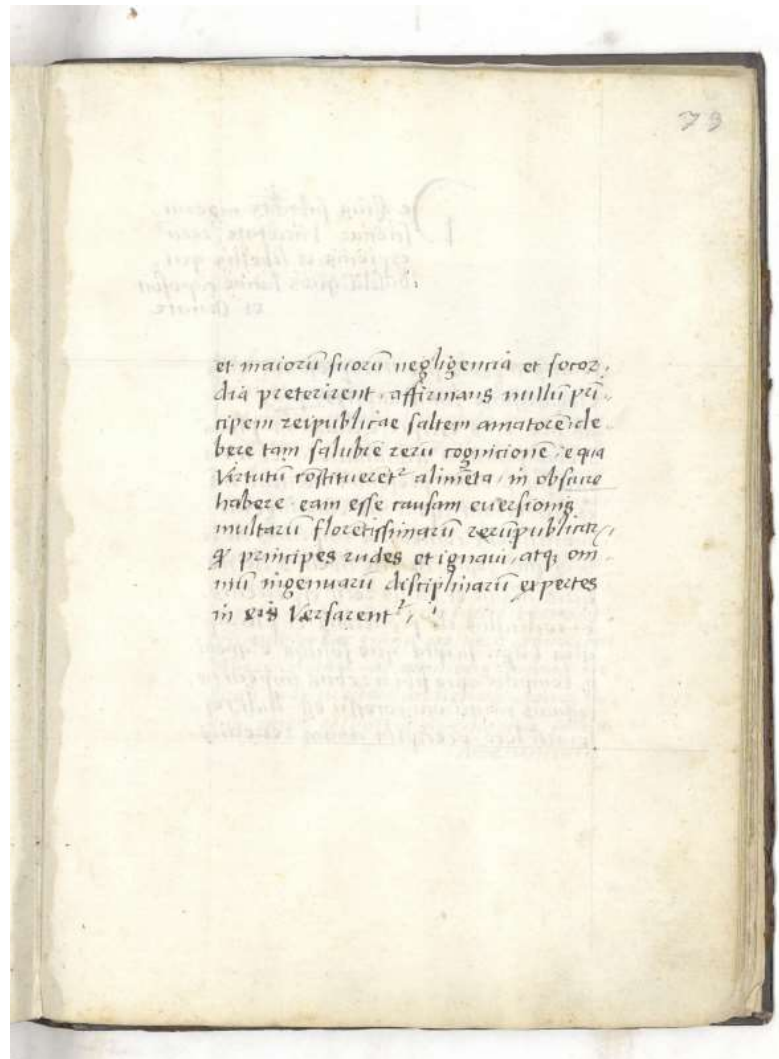 73
et maiorū suorū negligencia et socor,
dia preterirent · affirmans nullū prī-
cipem reipublicae saltem amatorē: de
bere tam salubrē rerū cognicionē, e qua
virtutū cōstitueret᷑ alimēta, in obscuro
habere eam esse causam euersionis
multarū floretissimarū rerūpublicaꝝ,
ꝙ principes rudes et ignaui, atqꝫ om
niū ingenuarū disciplinarū expertes
in eis versarent᷑,